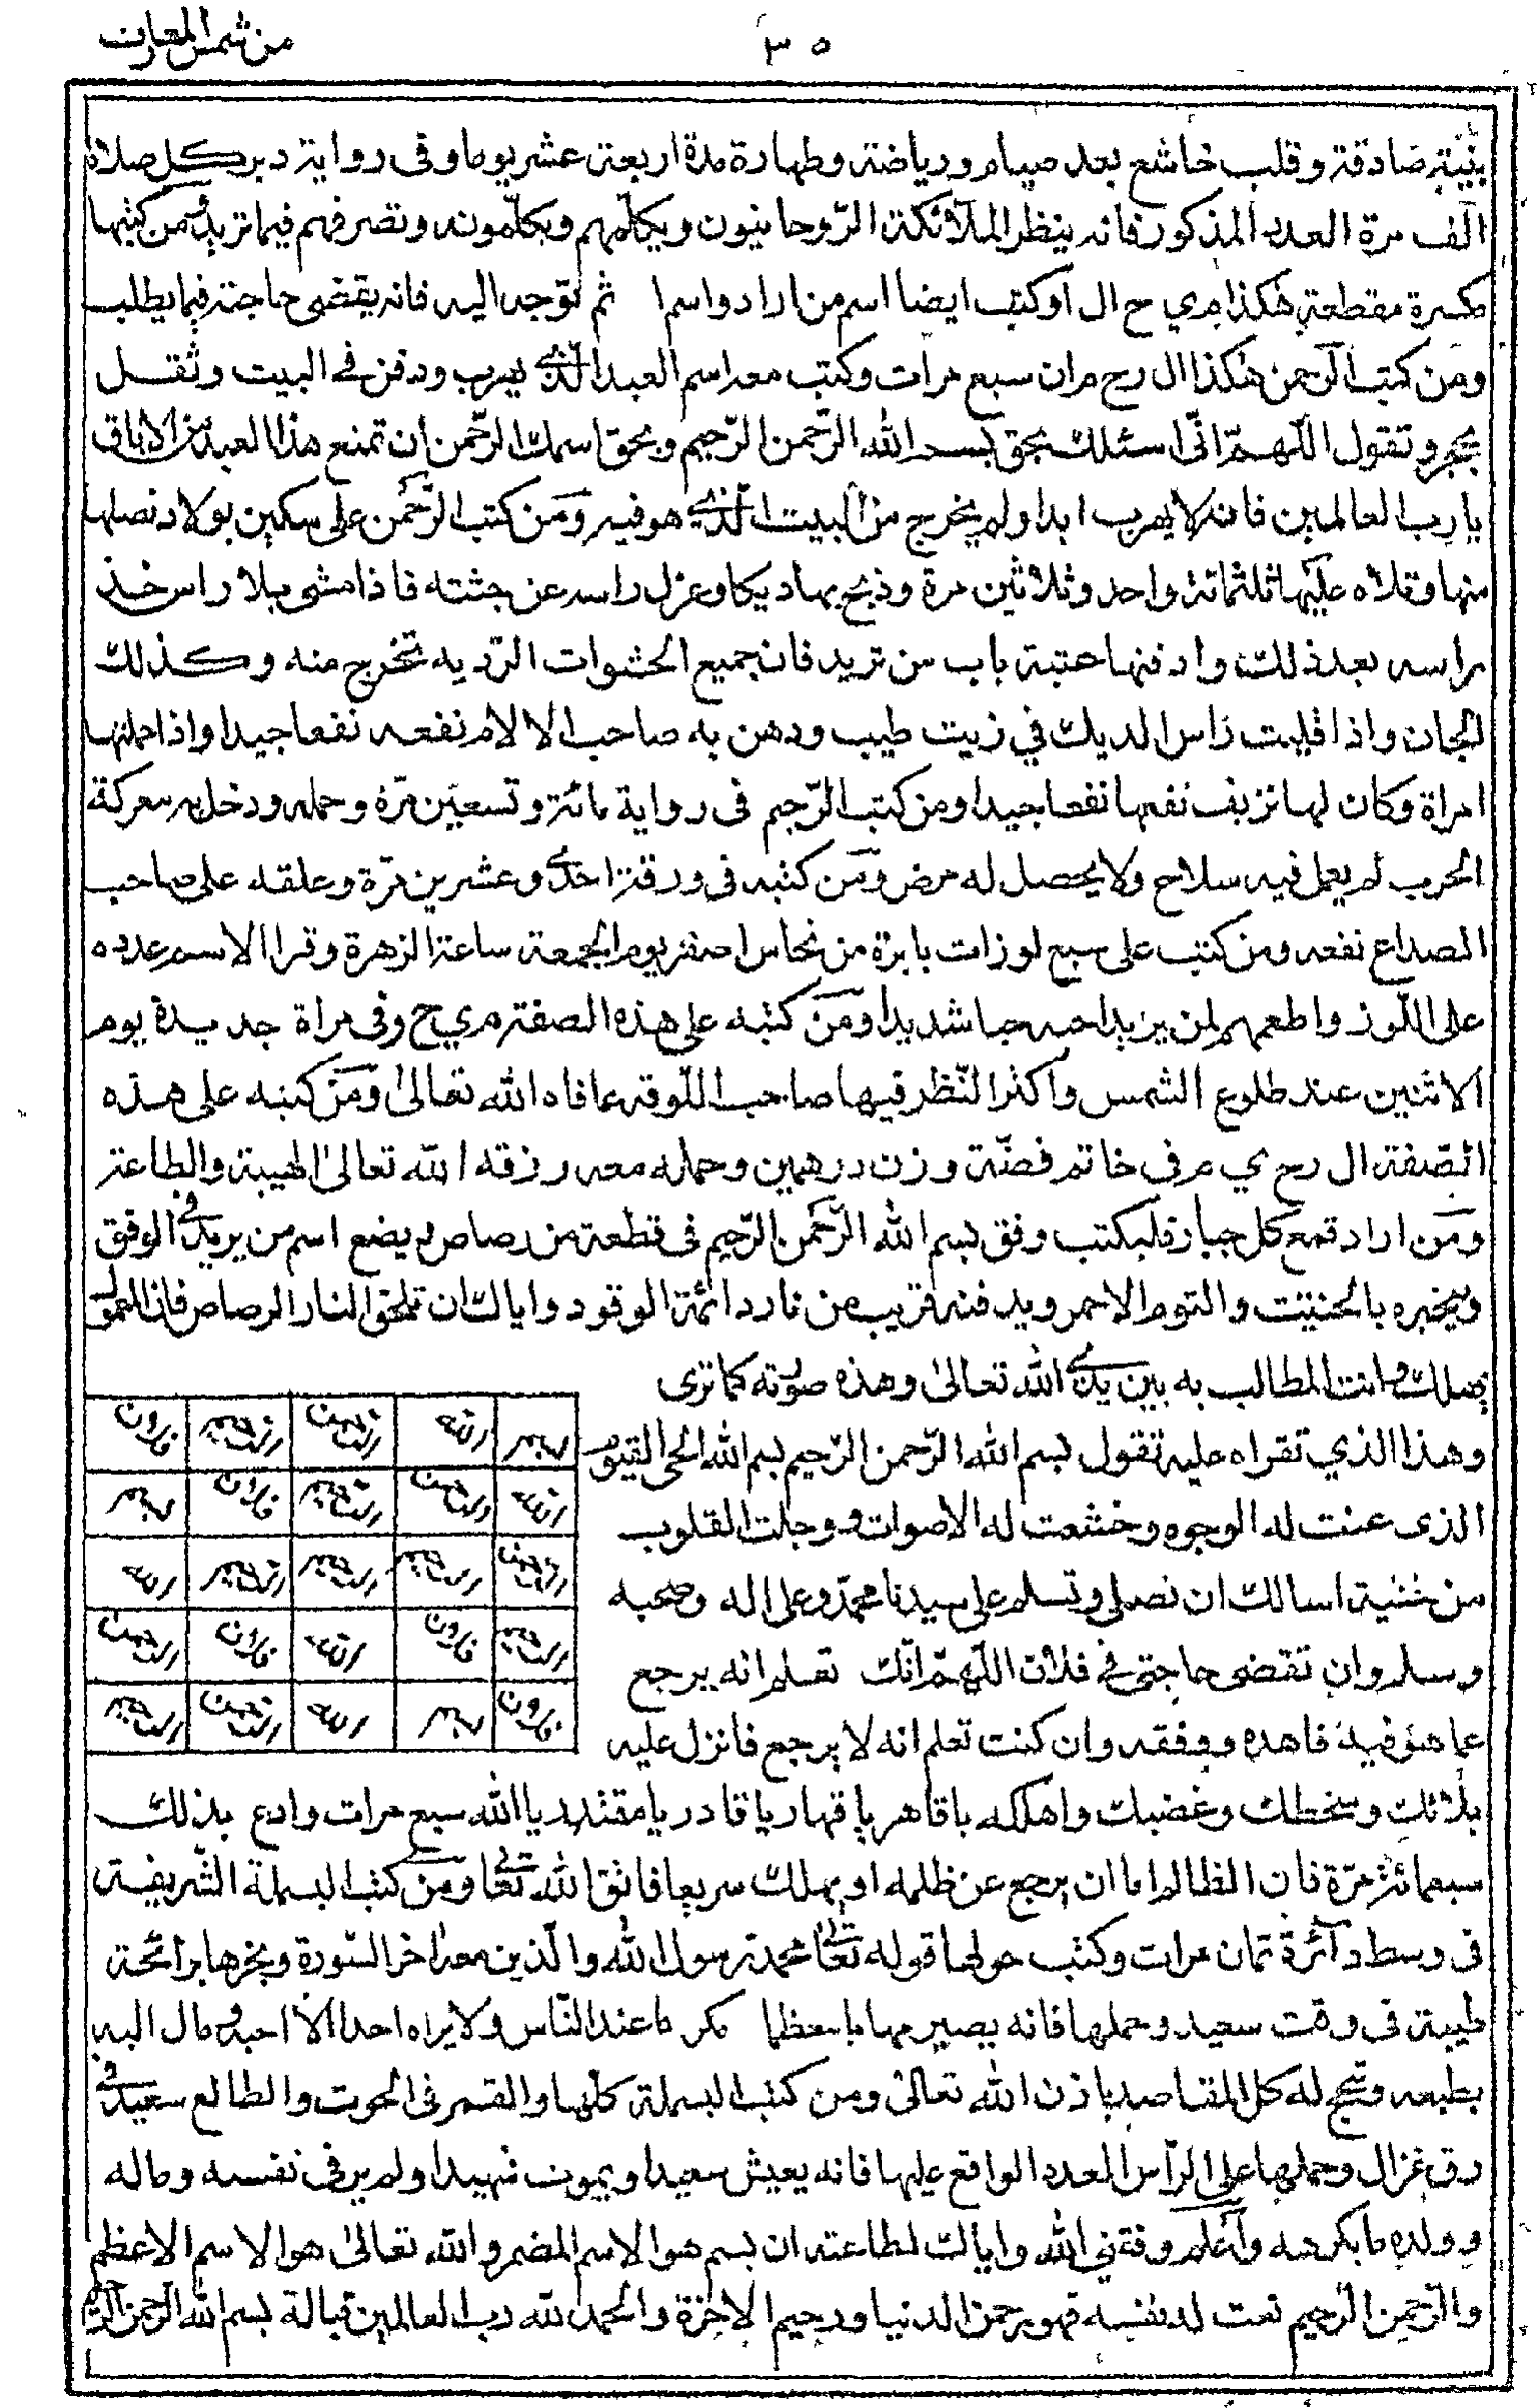 ٣٥
من شمس المعارف
بنية صادقة وقلب خاشع بعد صيام ورياضة وطهارة مدة اربعة عشر يوما وفى رواية دبر كل صلاة
الف مرة العدد المذكور فانه ينظر الملآئكة الرّوحانيون ويكلّمهم ويكلّمونه وتصرفهم فيما تريد ومن كتبها
مكسرة مقطعة هكذا م ي ح ر ال اوكتب ايضا اسم من اراد واسم ا ثم توجه اليه فانه يقضى حاجته فيما يطلب
ومن كتب الرّحمن هكذا ال رح م ا ن سبع مرات وكتب معه اسم العبد الّذى يهرب ودفن فى البيت وثقل
بحجر وتقول اللّهمّ انّى اسئلك بحق بسم الله الرّحمن الرّحيم وبحق اسمك الرّحمن ان تمنع هذا العبد من الاباق
يا رب العالمين فانه لا يهرب ابدا ولم يخرج من البيت الّذى هو فيه ومن كتب الرّحمن على سكين بولاد نصلها
منها وتلاه عليها ثلثمائة واحد وثلاثين مرة وذبح بها ديكا وعزل راسه عن جثته فاذا مشى بلا راس خذ
راسه بعد ذلك وادفنها عتبة باب من تريد فان جميع الحشوات الرّديه تخرج منه وكذلك
الجان واذا قليت راس الديك في زيت طيب ودهن به صاحب الالام نفعه نفعا جيدا واذا حملتها
امراة وكان لها نزيف نفعها نفعا جيدا ومن كتب الرّحيم فى رواية مائة وتسعين مرّة وحمله ودخل به معركة
الحرب لم يعمل فيه سلاح ولا يحصل له مرض ومن كتبه فى ورقة احدى وعشرين مرّة وعلقه على صاحب
الصداع نفعه ومن كتب على سبع لوزات بابرة من نحاس اصفر يوم الجمعة ساعة الزهرة وقرا الاسم عدده
على اللّوز واطعمهم لمن يريد احبه حبا شديدا ومن كتبه على هذه الصفة م ي ح ر فى مراة جديدة يوم
الاثنين عند طلوع الشمس واكثر النّظر فيها صاحب اللّوقه عافاه الله تعالىٰ ومن كتبه على هذه
الصّفة ال رح ي م فى خاتم فضّة وزن درهمين وحمله معه رزقه الله تعالىٰ الهيبة والطاعة
ومن اراد قمع كل جبار فليكتب وفق بسم الله الرّحمن الرّحيم فى قطعة من رصاص ويضع اسم من يريد فى الوفق
ويبخره بالحنتيت والثوم الاحمر ويدفنه قريب من نار دائمة الوقود واياك ان تلحق النار الرصاص فان المعمول
يهلك وانت المطالب به بين يدى الله تعالىٰ وهذه صورته كما ترى
وهذا الذي تقراه عليه تقول بسم الله الرّحمن الرّحيم بسم الله الحى القيوم
الذى عنت له الوجوه وخشعت له الاصوات ووجلت القلوب
من خشية اسالك ان تصلى وتسلم على سيدنا محمّد وعلى اله وصحبه
وسلم وان تقضى حاجتى فى فلان اللّهمّ انّك تعلم انه يرجع
عما هو فيه فاهده ووفقه وان كنت تعلم انه لا يرجع فانزل عليه
بلائك وسخطك وغضبك واهلكه يا قاهر يا قهار يا قادر يا مقتدر يا الله سبع مرات وادع بذلك
سبعمائة مرّة فان الظالم اما ان يرجع عن ظلمه او يهلك سريعا فاتق الله تعا ومن كتب البسملة الشّريفة
فى وسط دآئرة ثمان مرات وكتب حولها قوله تعا محمد رسول الله والّذين معه اخر السّورة وبخرها برائحة
طيبة فى وقت سعيد وحملها فانه يصير مهابا معظما مكرما عند النّاس ولا يراه احد الّا احبه ومال اليه
بطبعه ونتج له كل المقاصد باذن الله تعالىٰ ومن كتب البسملة كلّها والقمر فى الحوت والطالع سعيد فى
رق غزال وحملها على الرّاس العدد الواقع عليها فانه يعيش سعيدا ويموت شهيدا ولم ير فى نفسه وماله
وولده ما يكرهه وآعلم وفقنى الله واياك لطاعته ان بسم هو الاسم المضمر والله تعالىٰ هو الاسم الاعظم
والرّحمن الرّحيم نعت لد نفسه فهو رحمن الدنيا ورحيم الاخرة والحمد لله رب العالمين قبالة بسم الله الرّحمن الرّحيم
بسم الله الرحمن الرحيم فلان
الله الرحمن الرحيم فلان بسم
الرحمن الرحيم الرحيم الرحيم الله
الرحيم فلان الله فلان الرحمن
فلان بسم الله الرحمن الرحيم